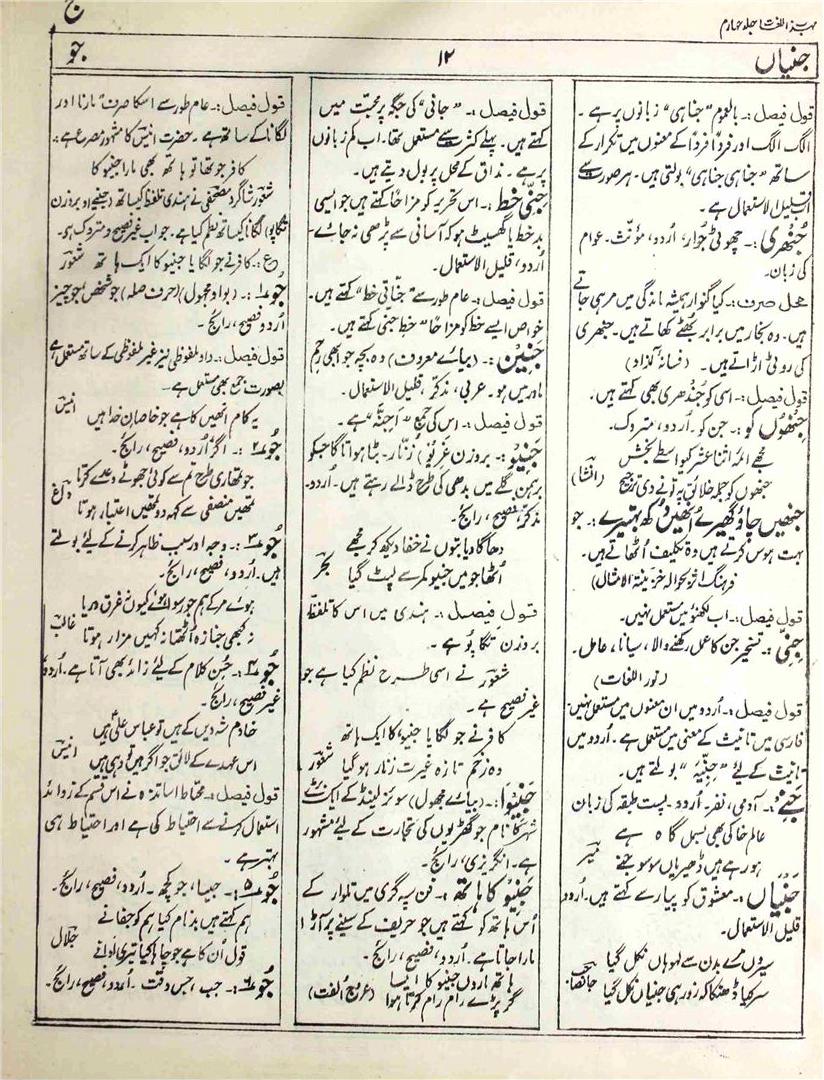 ج
مہذب اللغت جلد چہارم
جنیاں
۱۲
جو
قول فیصل :۔ بالعموم "جناہی" زبانوں پر ہے ۔
الگ الگ اور فرداً فرداً کے معنوں میں تکرار کے
ساتھ "جناہی جناہی" بولتی ہیں۔ ہر صورت سے
قلیل الاستعمال ہے ۔
جُنْھری :۔ چھوٹی جُوار، اُردو، مؤنث۔ عوام
کی زبان۔
محل صرف :۔ کیا گنوار ہمیشہ ماندگی میں مر ہی جاتے
ہیں۔ وہ بخار میں برابر بھُٹے کھاتے ہیں۔ جنھری
کی روٹی اڑاتے ہیں۔ (فسانۂ آزاد)
قول فیصل :۔ اسی کو جُندھری بھی کہتے ہیں۔
جنھوں کو :۔ جن کو۔ اُردو، متروک۔
مجھے ائمہ اثنا عشر کے واسطے بخش
جنھوں کو جملہ خلائق پہ آنے دی ترجیح (انشا)
جنھیں چاؤ گھیرے اُنھیں دُکھ بہتیرے :۔ جو
بہت ہوس کرتے ہیں وہ تکلیف اُٹھاتے ہیں۔
فرہنگ اثر بحوالہ خزینۃ الامثال)
قول فیصل :۔ اب لکھنؤ میں مستعمل نہیں۔
جِنّی :۔ تسخیر جن کا عمل رکھنے والا، سیانا، عامل۔
(نور اللغات)
قول فیصل :۔ اُردو میں ان معنوں میں مستعمل نہیں
فارسی میں تانیث کے معنی میں مستعمل ہے ۔ اُردو میں
تانیث کے لیے "جِنّیہ" بولتے ہیں۔
جَنے :۔ آدمی، نفر۔ اُردو۔ پست طبقہ کی زبان
عالم خاکی بھی بسمل گاہ ہے
ہو رہے ہیں ڈھیر یاں سو سو جنے میر
جَنیاں :۔ معشوق کو پیار سے کہتے ہیں۔ اُردو
قلیل الاستعمال۔
سیروں مرے بدن سے لہو ہاں نکل گیا
سر کیا ڈھنکا کہ زور ہی جنیاں نکل گیا جانصاحب
قول فیصل :۔ "جانی" کی جگہ پر محبت میں
کہتے ہیں۔ پہلے کثرت سے مستعمل تھا۔ اب کم زبانوں
پر ہے ۔ مذاق کے محل پر بول دیتے ہیں۔
جِنّی خط :۔ اس تحریر کو مزاحاً کہتے ہیں جو ایسی
بد خط یا گھسیٹ ہو کہ آسانی سے پڑھی نہ جائے۔
اُردو، قلیل الاستعمال۔
قول فیصل :۔ عام طور سے "جنّاتی خط" کہتے ہیں۔
خواص ایسے خط کو مزاحاً "خط جنّی" کہتے ہیں۔
جَنین :۔ (بیائے معروف) وہ بچہ جو ابھی رحم
مادر میں ہو۔ عربی، مذکر، قلیل الاستعمال۔
قول فیصل :۔ اس کی جمع "اَجِنَّہ" ہے ۔
جنیو :۔ بروزن غریو) زُنار۔ بٹا ہوا تاگا جس کو
برہمن گلے میں بدھی کی طرح ڈالے رہتے ہیں۔ اُردو۔
مذکر، فصیح، رائج۔
دھاگا دیا بتوں نے خفا دیکھ کر مجھے
اُٹھا جو میں جنیو کمر سے لپٹ گیا بحر
قول فیصل :۔ ہندی میں اس کا تلفظ
بروزن تگاپُو ہے ۔
شعور نے اسی طرح نظم کیا ہے جو
غیر فصیح ہے ۔
کافر نے جو لگایا جنیو، کا ایک ہاتھ
وہ زخم تازہ غیرت زنار ہو گیا شعور
جنیوا :۔ (بیائے مجہول) سوئزرلینڈ کے ایک بڑے
شہر کا نام جو گھڑیوں کی تجارت کے لئے مشہور
ہے ۔ انگریزی، رائج۔
جنیو کا ہاتھ :۔ فن سپہ گری میں تلوار کے
اُس ہاتھ کو کہتے ہیں جو حریف کے سینے پر آڑا
مارا جاتا ہے ۔ اُردو، فصیح، رائج۔
ہاتھ ماروں جنیو کا ایسا
گر پڑے رام رام کرتا ہوا (عروج اُلفت)
قول فیصل :۔ عام طور سے اسکا صرف مارنا اور
لگانا کے ساتھ ہے ۔ حضرت انیس کا مشہور مصرع ہے :
کافر جو تھا تو ہاتھ بھی مارا جنیو کا
شعور شاگرد مصحفی نے ہندی تلفظ کیساتھ (جنیو بروزن
تگاپو) لگانا کیساتھ نظم کیا ہے ۔ جو اب غیر فصیح و متروک ہو۔
ع : کافر نے جو لگایا جنیو کا ایک ہاتھ شعور
جُو ۱ :۔ (بواو مجہول) (حرف صلہ) جو شخص، جو چیز
اُردو فصیح، رائج۔
قول فیصل :۔ واو ملفوظی نیز غیر ملفوظی کے ساتھ مستعمل ہے
بصورت جمع بھی مستعمل ہے ۔
یہ کام انھیں کا ہے جو خاصانِ خدا ہیں انیس
جُو ۲ :۔ اگر اُردو، فصیح، رائج۔
جو تمھاری طرح تم سے کوئی جھوٹے وعدے کرتا
تمھیں منصفی سے کہہ دو تمھیں اعتبار ہوتا داغ
جُو ۳ :۔ وجہ اور سبب ظاہر کرنے کے لئے بولتے
ہیں۔ اُردو، فصیح، رائج۔
ہوئے مر کے ہم جو رسوا ہوئے کیوں نہ غرق دریا
نہ کبھی جنازہ اُٹھتا نہ کہیں مزار ہوتا غالب
جُو ۴ :۔ حُسن کلام کے لئے زائد بھی آتا ہے ۔ اُردو
غیر فصیح، رائج۔
خادم شہ دیں کے ہیں تو عباس علی ہیں
اس عہدے کے لائق جو اگر ہیں تو وہی ہیں انیس
قول فیصل :۔ محتاط اساتذہ نے اس قسم کے زوائد
استعمال کرنے سے احتیاط کی ہے اور احتیاط ہی
بہتر ہے ۔
جُو ۵ :۔ جیسا، جو کچھ۔ اُردو، فصیح، رائج۔
ہم کہتے ہیں بدنام کیا ہم کو جفا نے
قول اُن کا ہے جو چاہا کیا تیری ادا نے جلال
جُو ۶ :۔ جب، جس وقت۔ اُردو، فصیح، رائج۔